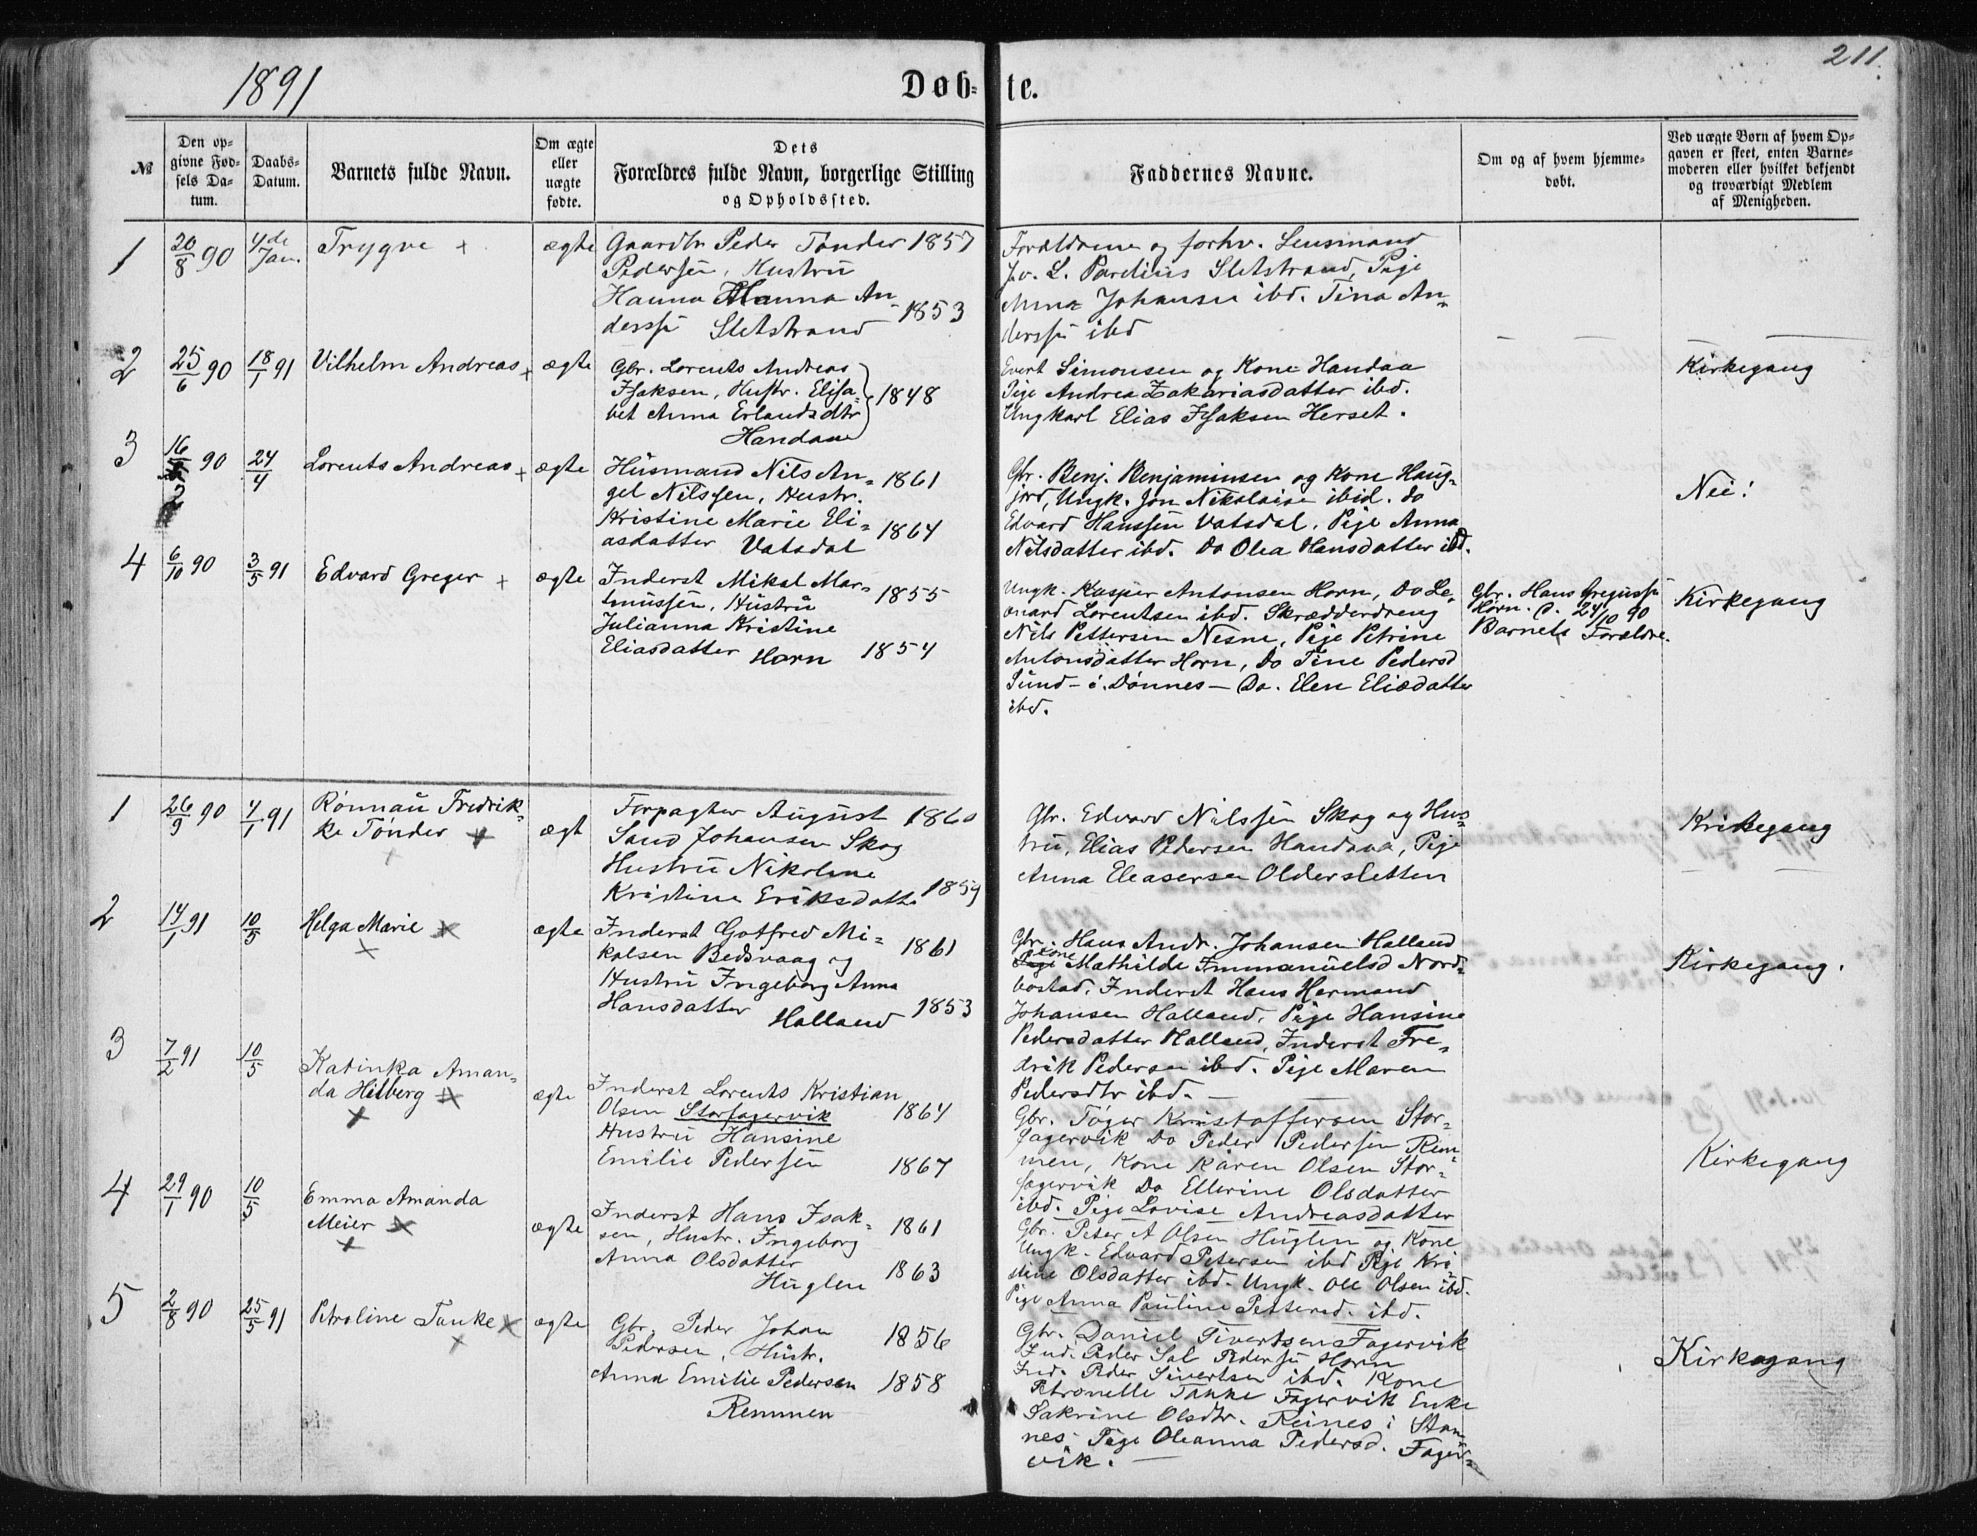 1891
Døb-
te.
211.
№
Den op-
givne Fød-
sels Da-
tum.
Daabs-
Datum.
Barnets fulde Navn.
Om ægte
eller
uægte
fødte.
Dets
Forældres fulde Navn, borgerlige Stilling
og Opholdssted.
Faddernes Navne.
Om og af hvem hjemme-
døbt.
Ved uægte Børn af hvem Op-
gaven er skeet, enten Barne-
moderen eller hvilket bekjendt
og troværdigt Medlem
af Menigheden.
1
20/8 90
4de
Jan.
Trygve +
ægte
Gaardbr Peder Tønder 1857
Pedersen, Hustru
Hanna Manna An-
1853
derssen Sletstrand
Forældrene og forhv. Lensmand
L. Parelius Sletstrand, Pige
Anna Johansen ibd. Tina An-
derssen ibd
2
25/6 90
18/1 91
Vilhelm Andreas +
ægte
Gbr. Lorents Andreas
Isaksen, Hustr. Elisa-
1848
bet Anna Erlandsdtr
Handaae
Evert Simonsen og Kone Handaa
Pige Andrea Zakariasdatter ibd.
Ungkarl Elias Isaksen Herset.
Kirkegang
3
16/2 90
24/4
Lorents Andreas +
ægte
Husmand Nils An-
1861
gel Nilssen, Hustr.
Kristine Marie Eli-
1864
asdatter Vatsdal
Gbr. Benj. Benjaminsen og Kone Haug-
jord, Ungk. Jon Nikolaise ibid. do
Edvard Hanssen Vatsdal, Pige Anna
Nilsdatter ibd. Do Olea Hansdatter ibd.
Nei!
4
6/10 90
3/5 91
Edvard Greger +
ægte
Inderst Mikal Mar-
1855
tinussen, Hustru
Julianna Kristine
Eliasdatter Horn 1854
Ungk. Kasper Antonsen Horn, Do Le-
onard Lorentsen ibd. Skrædderdreng
Nils Pettersen Nesne, Pige Petrine
Antonsdatter Horn, Do Tine Pedersd
Sund - i Dønnes - Do. Elen Eliædatter
ibd.
Gbr. Hans Gregussen
Horn. d. 24/10 90
Barnets Forældre.
Kirkegang
1
26/9 90
4/1 91
Rønnau Fredrik-
ke Tønder +
ægt
Forpagter August 1860
Sand Johansen Skog
Hustru Nikoline
Kristine Eriksdatt. 1859
Gbr. Edvard Nilssen Skog og Hus-
tru, Elias Pedersen Handaa, Pige
Anna Eleasersen Oldersletten
Kirkegang
2
14/1 91
10/5
Helga Marie +
ægte
Inderst Gotfred Mi-
1861
kalsen Bedsvaag og
Hustru Ingeborg Anna
Hansdatter Halland 1853
Gbr. Hans Andr. Johansen Halland
Kone
Mathilde Immanuelsd Nord-
bostad, Inderst Hans Hermand
Johansen Halland, Pige Hansine
Pedersdatter Halland, Inderst Fre-
drik Pedersen ibd. Pige Maren
Pedersdtr ibd.
Kirkegang.
3
7/2 91
10/5
Katinka Aman-
da Hilberg +
ægte
Inderst Lorents Kristian
Olsen Storfagervik
1864
Hustru Hansine
Emilie Pedersen
1867
Gbr. Tøger Kristoffersen Stor-
fagervik Do Peder Pedersen Rem-
men, Kone Karen Olsen Stor-
fagervik Do Ellerine Olsdatter
ibd. Pige Lovise Andreasdatter
Kirkegang
4
29/1 90
10/5
Emma Amanda
Meier +
ægte
Inderst Hans Isak-
1861
sen, Hustr. Ingeborg
Anna Olsdatter
1863
Huglen
Gbr. Peter A Olsen Huglen og Kone
Ungk. Edvard Petersen ibd Pige Kri-
stine Olsdatter ibd. Ungk. Ole Olsen ibd.
Pige Anna Pauline Pettersd. ibd.
5
2/8 90
25/5 91
Petroline Tanke +
ægte
Gbr. Peder Johan
1856
Pedersen, Hustr.
Anna Emilie Pedersen 1858
Remmen
Gbr. Daniel Sivertsen Fagervik
Ind. Peder Sal Pedersen Horn
Ind. Peder Sivertsen ibd. Kone
Petronelle Tanke Fagervik Enke
Sakrine Olsdtr. Reines i Stam-
nes- Pige Oleanna Pedersd. Fager-
vik.
Kirkegang